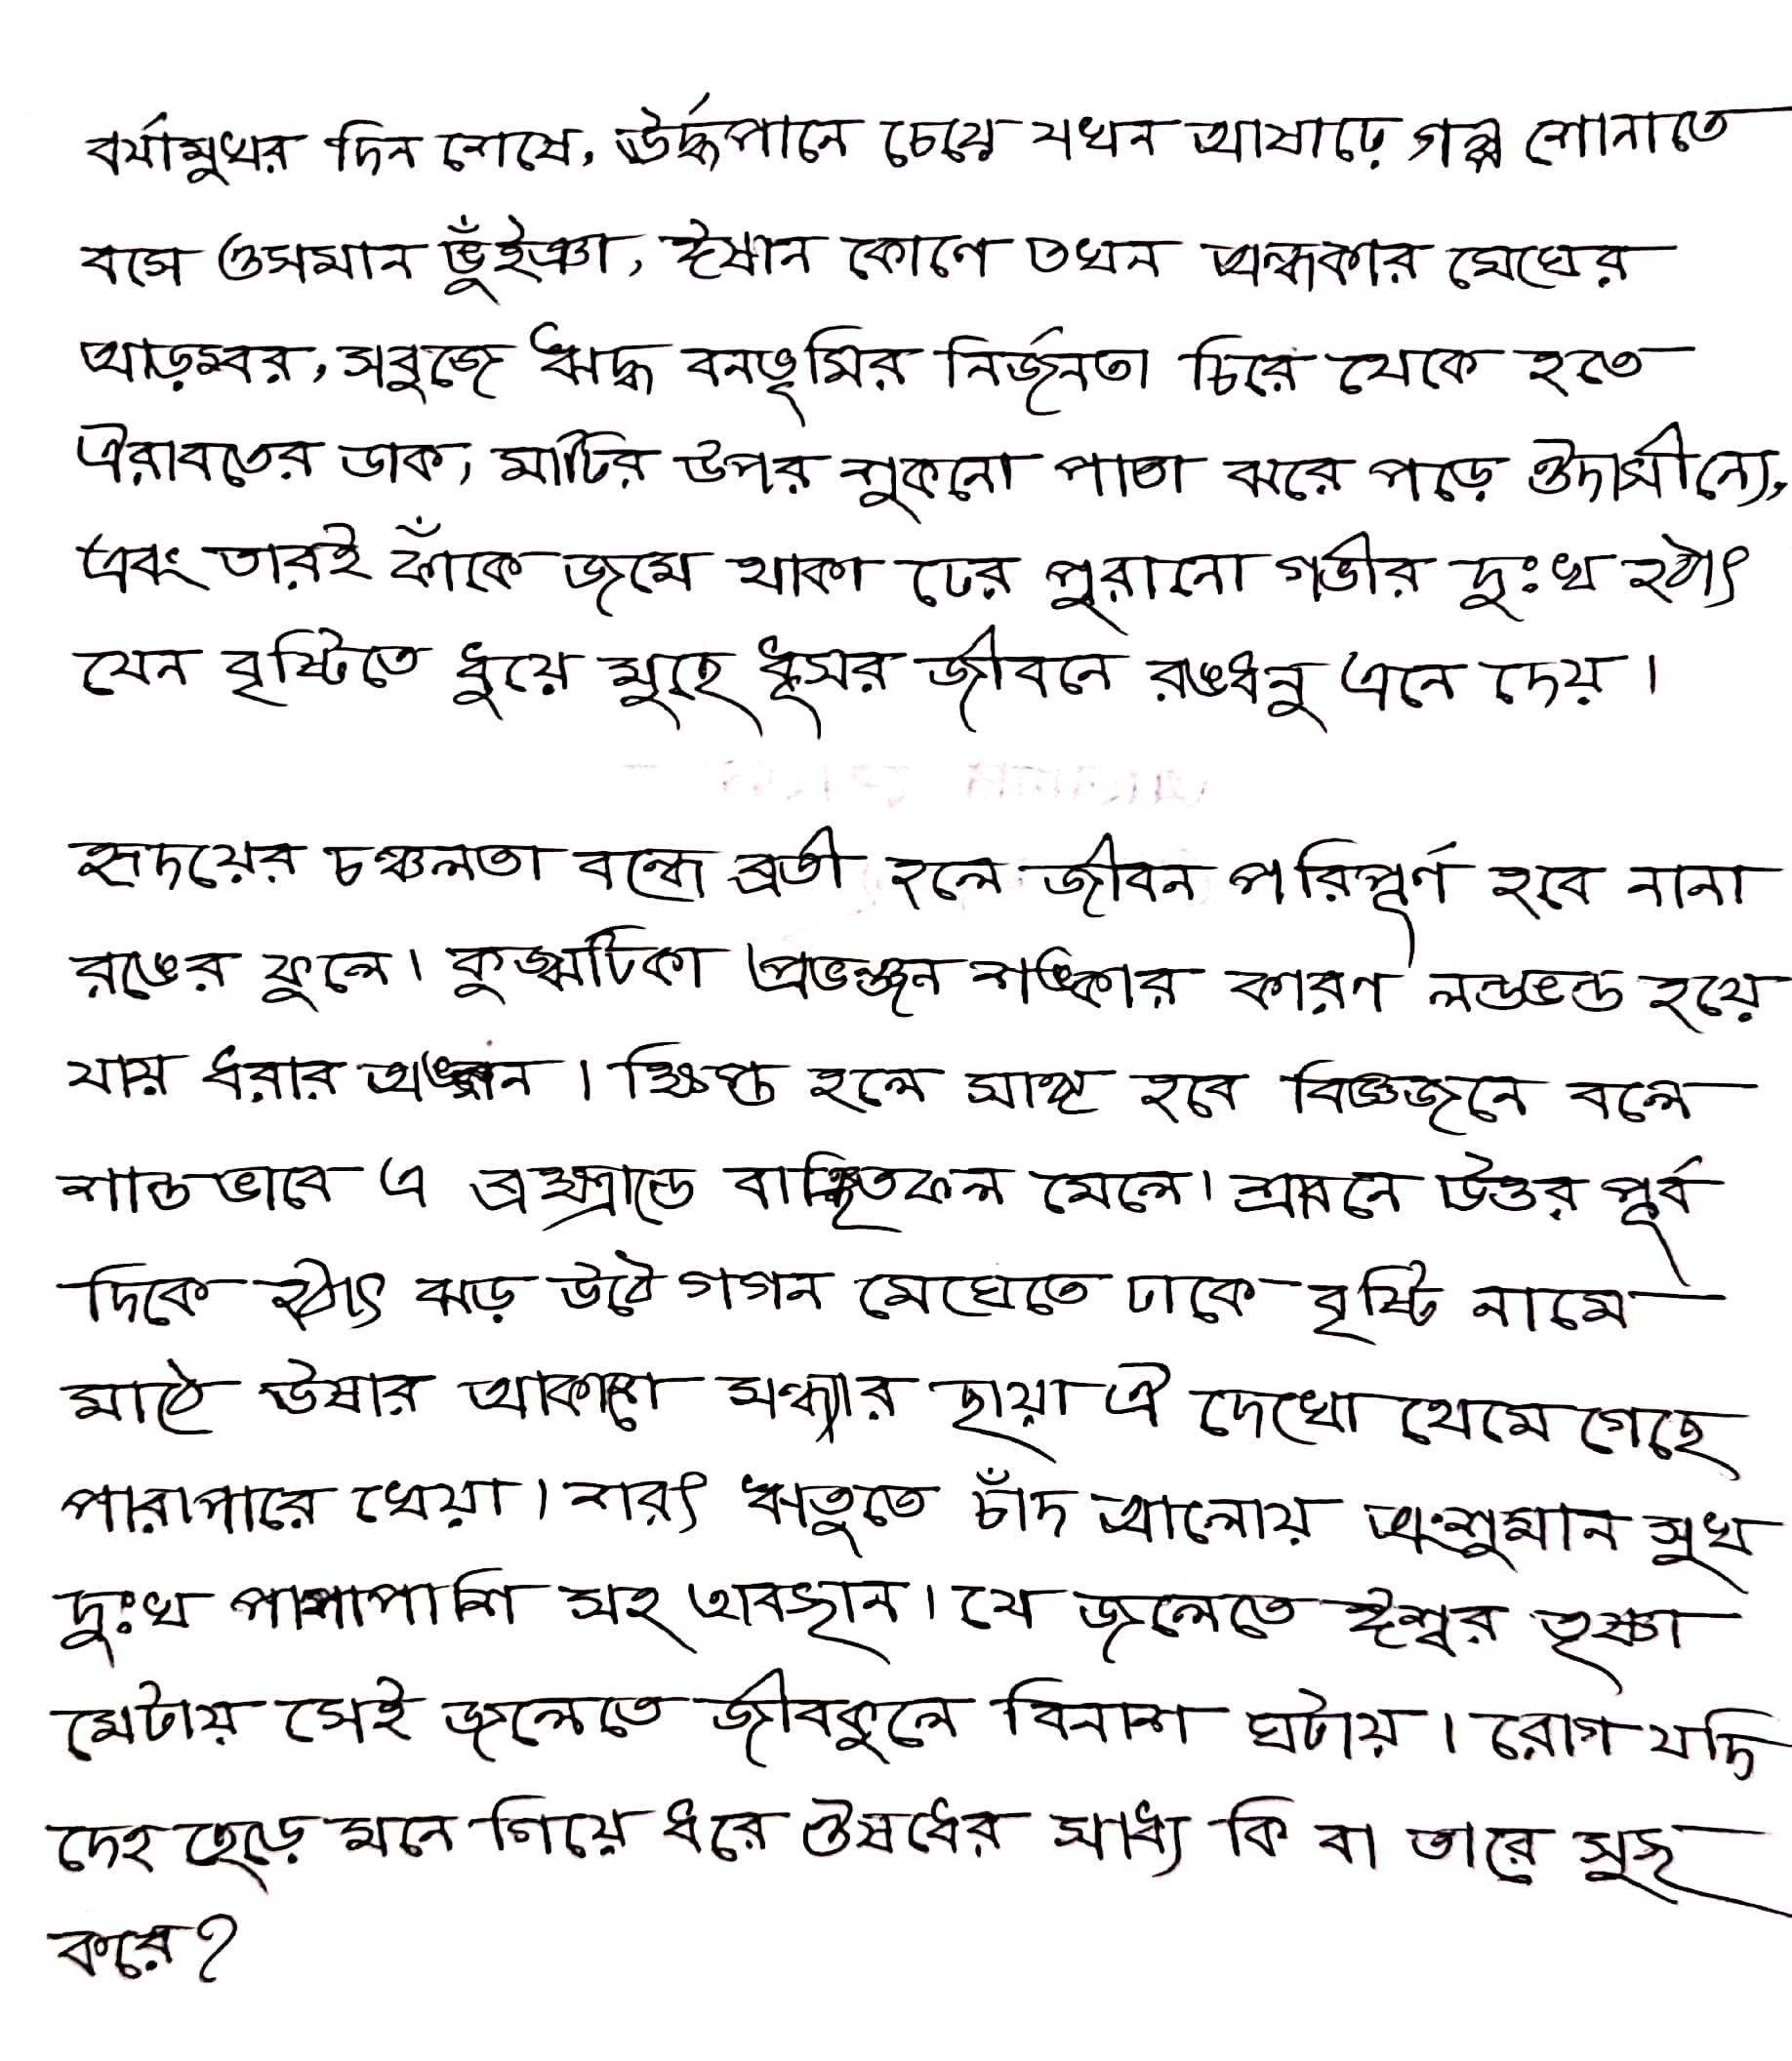 বর্ষামুখর দিন শেষে, ঊর্দ্ধপানে চেয়ে যখন আষাঢ়ে গল্প শোনাতে
বসে ওসমান ভুঁইঞা, ঈষান কোণে তখন অন্ধকার মেঘের
আড়ম্বর, সবুজে ঋদ্ধ বনভূমির নির্জনতা চিরে থেকে হতে
ঐরাবতের ডাক, মাটির উপর শুকনো পাতা ঝরে পড়ে ঔদাসীন্যে,
এবং তারই ফাঁকে জমে থাকা ঢের পুরানো গভীর দুঃখ হঠাৎ
যেন বৃষ্টিতে ধুয়ে মুছে ধূসর জীবনে রঙধনু এনে দেয়।
হৃদয়ের চঞ্চলতা বন্ধে ব্রতী হলে জীবন পরিপূর্ণ হবে নানা
রঙের ফুলে। কুজ্ঝটিকা প্রভঞ্জন শঙ্কার কারণ লন্ডভন্ড হয়ে
যায় ধরার অঙ্গন। ক্ষিপ্ত হলে সাঙ্গ হবে বিজ্ঞজনে বলে
শান্তভাবে এ ব্রহ্মান্ডে বাঞ্ছিতফল মেলে। শ্রাবনে উত্তর পূর্ব
দিকে হঠাৎ ঝড় উঠে গগন মেঘেতে ঢাকে বৃষ্টি নামে
মাঠে ঊষার আকাশে সন্ধ্যার ছায়া ঐ দেখো থেমে গেছে
পারাপারে খেয়া। শরৎ ঋতুতে চাঁদ আলোয় অংশুমান সুখ
দুঃখ পাশাপাশি সহ অবস্থান। যে জলেতে ঈশ্বর তৃষ্ণা
মেটায় সেই জলেতে জীবকুলে বিনাশ ঘটায়। রোগ যদি
দেহ ছেড়ে মনে গিয়ে ধরে ঔষধের সাধ্য কি বা তারে সুস্থ
করে?